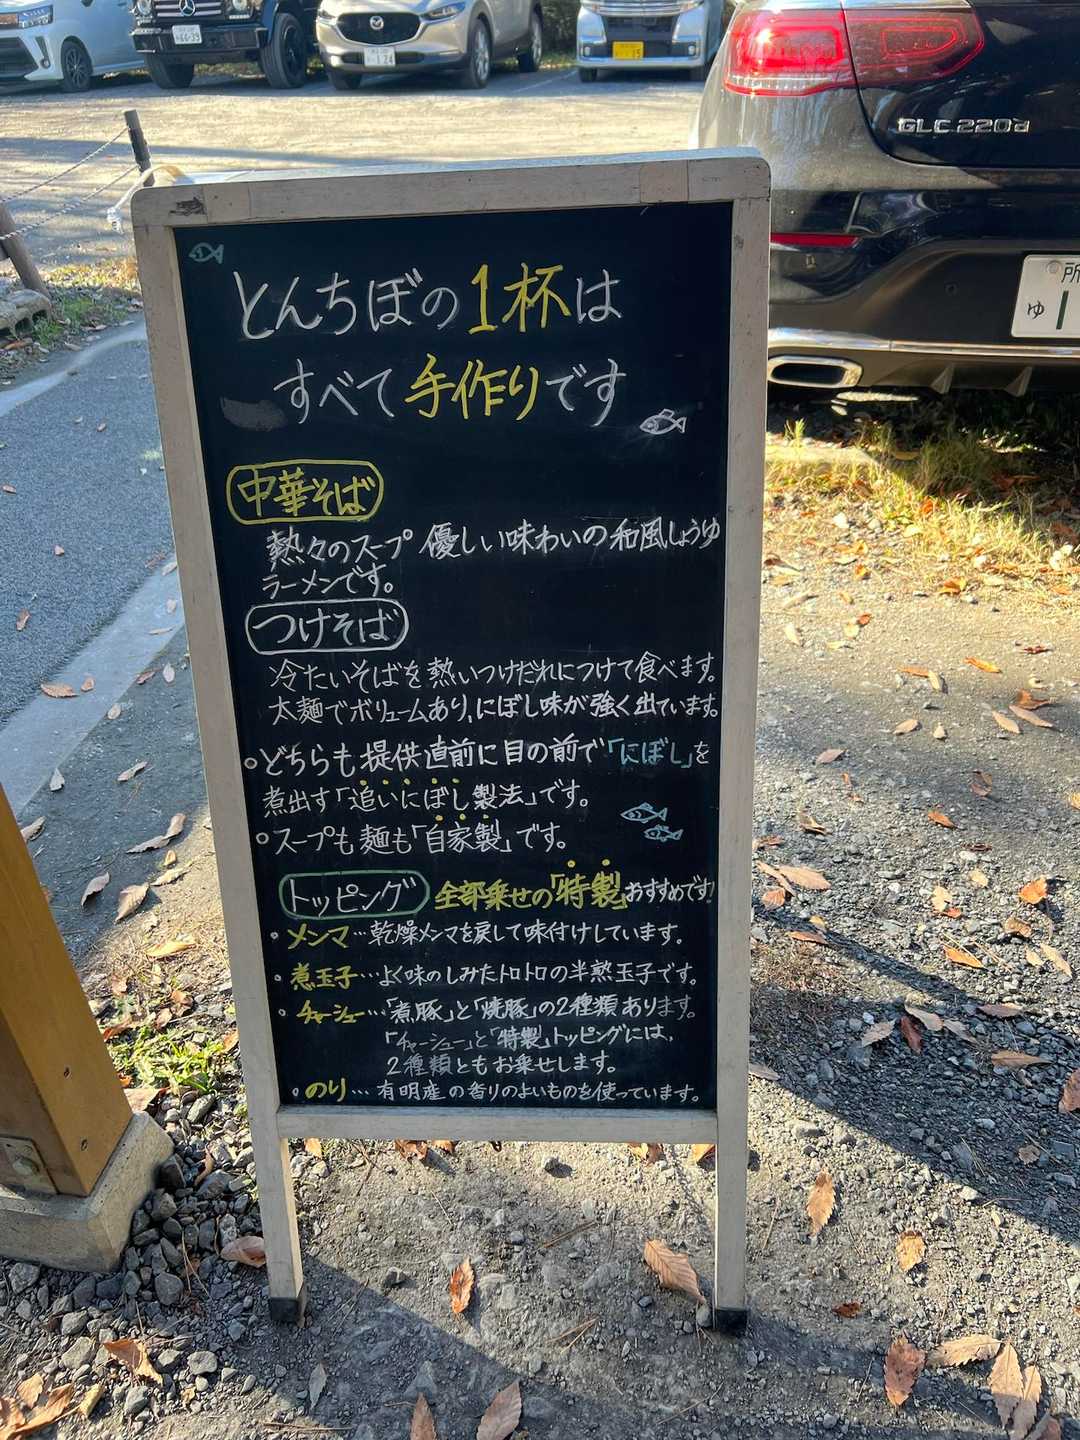 66-39
・124
・・15
GLC 220d
所
ゆ 1
とんちぼの1杯は
すべて手作りです
中華そば
熱々のスープ 優しい味わいの和風しょうゆ
ラーメンです。
つけそば
冷たいそばを熱いつけだれにつけて食べます。
太麺でボリュームあり、にぼし味が強く出ています。
どちらも提供直前に目の前で「にぼし」を
煮出す「追いにぼし製法」です。
スープも麺も「自家製」です。
トッピング 全部乗せの「特製」おすすめです!
・メンマ…乾燥メンマを戻して味付けしています。
・煮玉子…よく味のしみたトロトロの半熟玉子です。
・チャーシュー…「煮豚」と「焼豚」の2種類あります。
「チャーシュー」と「特製」トッピングには、
2種類ともお乗せします。
・のり…有明産の香りのよいものを使っています。